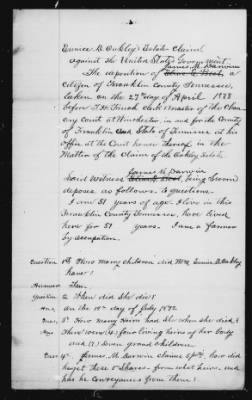 Eunice D. Oakley's Estate Claim
against the United States Government
James M Darwin
The deposition of a
citizen of Franklin County Tennessee,
taken on the 27 day of April 1888
before Clerk & Master of the Chan-
cery Court at Winchester, in and for the County
of Franklin and State of Tennessee at his
office at the Court house thereof in the
Matter of the Claim of the Oakley Estate
James M Darwin
Said Witness being sworn
deposes as follows. To questions—
I am 51 years of age. I live in this
Franklin County Tennessee, have lived
here for 51 years. I am a farmer
by occupation.
Question 1st How many children did Mrs Eunice D Oakley
have?
Answer Ten.
Question 2 When did She die?
Ans. On the 10th day of July 1872
Ques. 3d How many Heirs had she when she died?
Ans There were (4) four living heirs of her body
and (7) Seven grand children.
Ques 4th James M. Darwin claims 5/10ths, how did
he get these 5 Shares - from what heirs, and
has he conveyances from them?